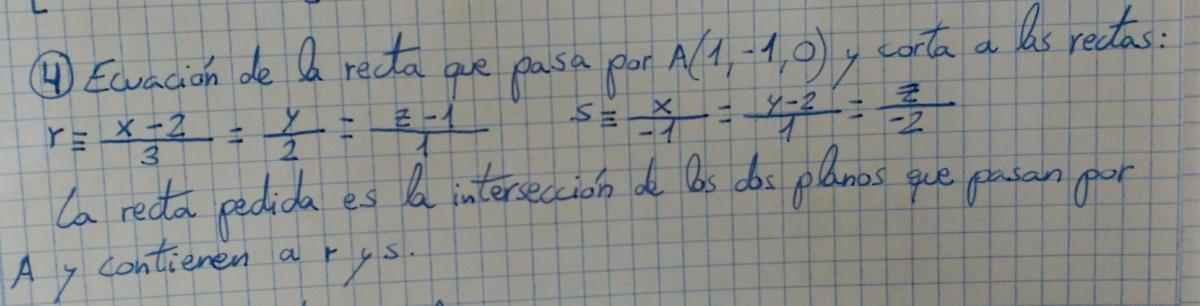 ④ Ecuación de la recta que pasa por A(1,-1,0) y corta a las rectas:
r ≡ x-2/3 = y/2 = z-1/1 s ≡ x/-1 = y-2/1 = z/-2
La recta pedida es la intersección de los dos planos que pasan por
A y contienen a r y s.